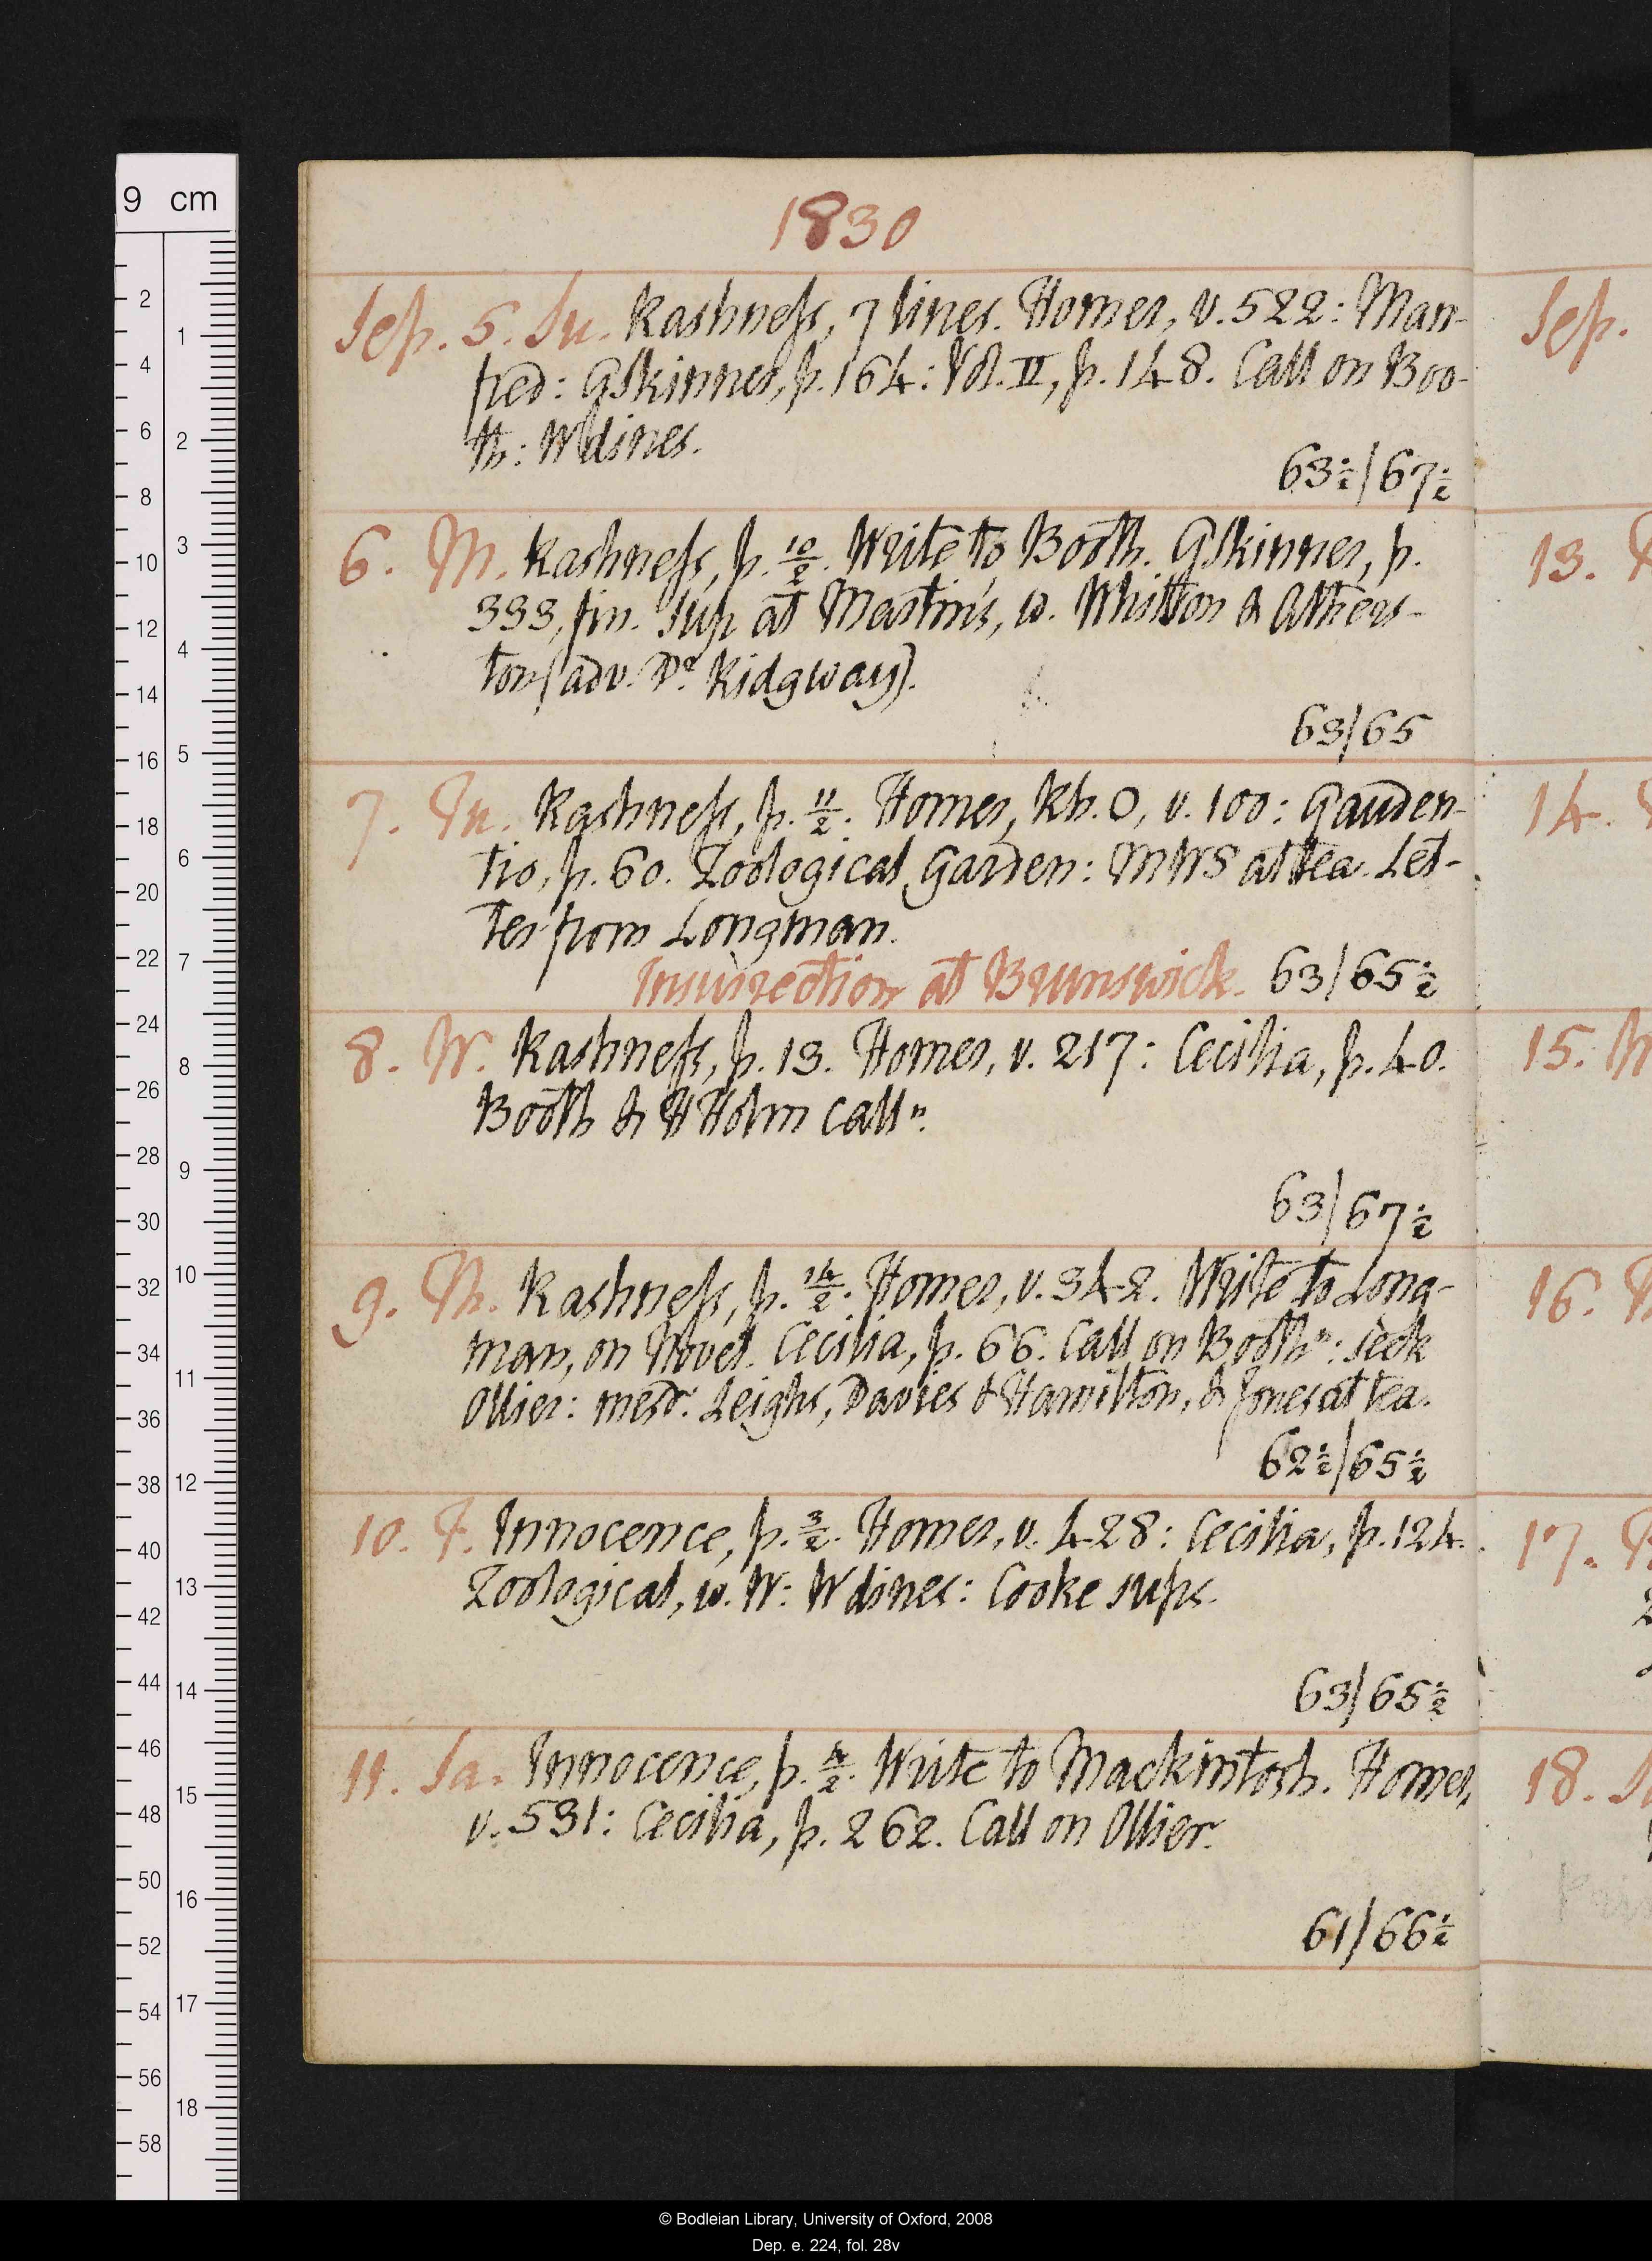 1830
Sep. 5. Su. Rashness, 7 lines. Homer, v. 522: Man-
fred: GSkinner, p. 164: Vol. II, p. 148. Call on Boo-
th: W dines.
63½/67½
6. M. Rashness, p. 10/2. Write to Booth. GSkinner, p.
333, fin. Sup at Martin's, w. Whitton & Athers-
ton (adv. Dr. Ridgway).
63/65
7. Tu. Rashness, p. 11/2. Homer, Rh. O, v. 100: Gauden-
tio, p. 60. Zoological Garden: MWS at tea. Let-
ter from Longman.
Insurrection at Brunswick. 63/65½
8. W. Rashness, p. 13. Homer, v. 217: Cecilia, p. 40.
Booth & HHolm call n.
63/67½
9. Th. Rashness, p. 14/2. Homer, v. 342. Write to Long-
man, on Novel. Cecilia, p. 66. Call on Booth n: seek
Ollier: mesdrs. Leighs, Davies & Hamilton, & Jones at tea.
62½/65½
10. F. Innocence, p. 3/2. Homer, v. 428: Cecilia, p. 124.
Zoological, w. W: W dines: Cooke sups.
63/65½
11. Sa. Innocence, p. 4/2. Write to Mackintosh. Homer,
v. 531: Cecilia, p. 262. Call on Ollier.
61/66½
Sep.
13.
14.
15.
16.
17.
18.
9 cm
© Bodleian Library, University of Oxford, 2008
Dep. e. 224, fol. 28v